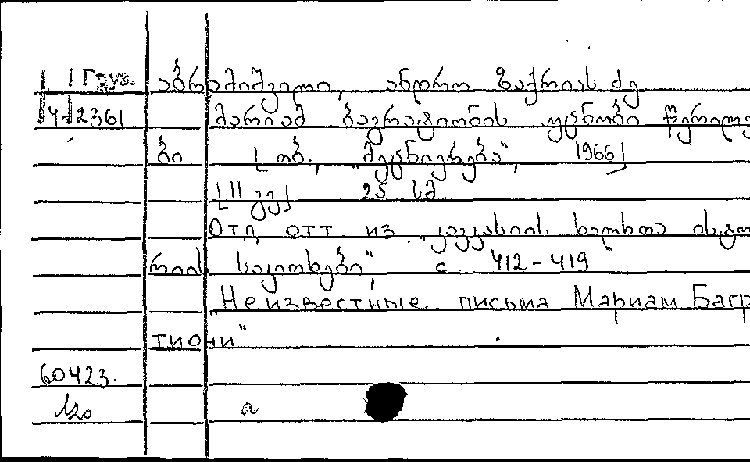 Груз. აბრამიშვილი, ანდრო ზაქრიას ძე
4-2361 მარიამ ბაგრატიონის უცნობი წერილე
ბი [თბ., „მეცნიერება", 1966]
[11 გვ.] 25 სმ
Отд. отт. из „კავკასიის ხალხთა ისტო
რიის საკითხები" с 412-419
„Неизвестные письма Мариам Багр
тиони"
60423.
а